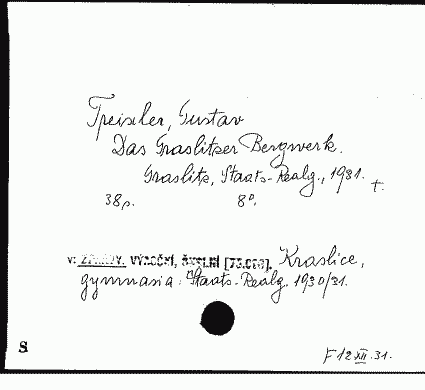 Treixler, Gustav
Das Graslitzer Bergwerk.
Graslitz, Staats-Realg., 1931. t.
38 p. 8°.
v: ZPRÁVY. VÝROČNÍ, ŠKOLNÍ [73.078]. Kraslice,
gymnasia: Staats-Realg. 1930/31.
S
F 12.XII.31.